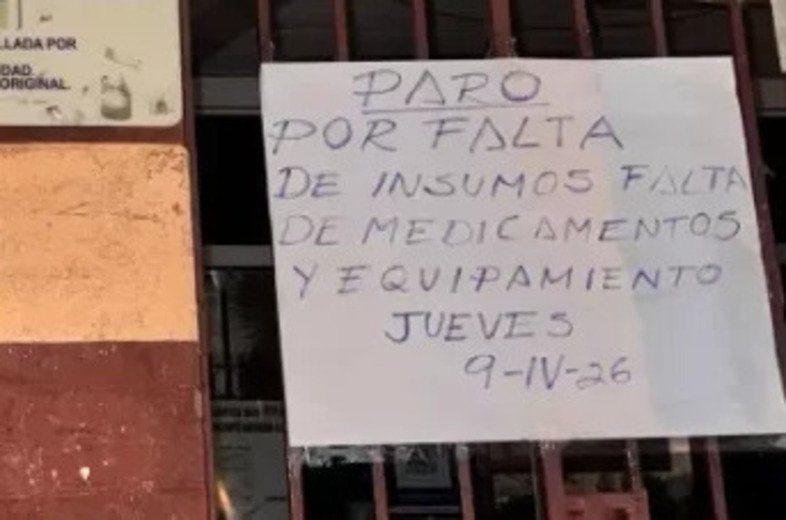 LLADA POR
DAD
ORIGINAL
PARO
POR FALTA
DE INSUMOS FALTA
DE MEDICAMENTOS
Y EQUIPAMIENTO
JUEVES
9-IV-26